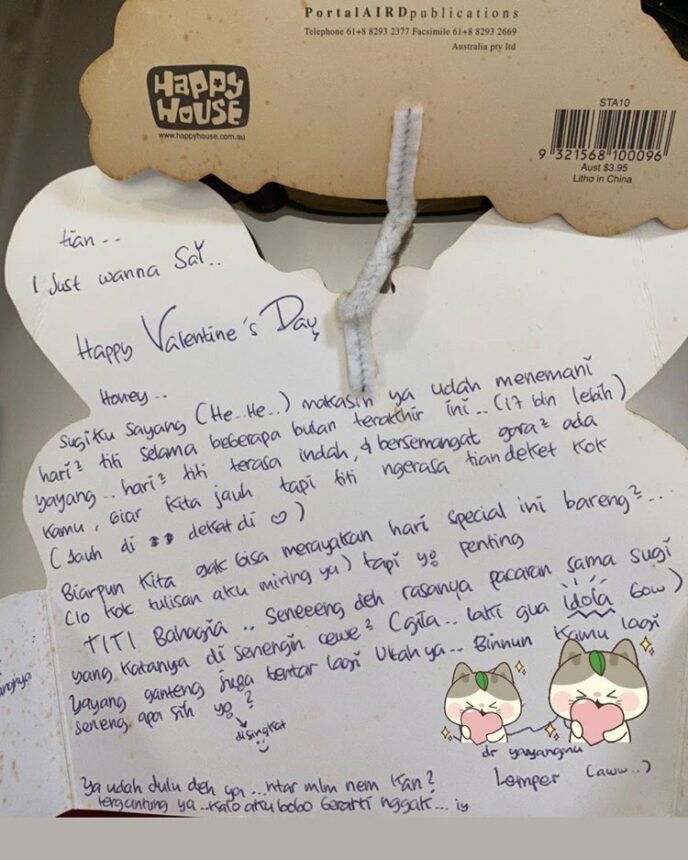 PortalAIRDpublications
Telephone 61+8 8293 2377 Facsimile 61+8 8293 2669
Australia pty ltd
HAPPY
HOUSE
www.happyhouse.com.au
STA10
9 321568 100096
Aust $3.95
Litho in China
tian --
I Just wanna SaY..
Happy Valentine's Day,
Honey --
Sugiku sayang (He..He..) makasih ya udah menemani
hari² titi selama beberapa bulan terakhir ini.. (17 bln lebih)
yayang .. hari² titi terasa indah, & bersemangat gara² ada
kamu, biar kita jauh tapi titi ngerasa tian deket kok
(Jauh di dekat di ♡)
Biarpun kita gak bisa merayakan hari special ini bareng²...
(lo kok tulisan aku miring ya) tapi yg penting
TITI Bahagia .. seneeeng deh rasanya pacaran sama sugi
yang katanya di senengin cewe² (gila.. laki gua idola bow)
yayang ganteng juga bentar lagi Ultah ya.. Binnun kamu lagi
seneng apa sih yg ?
disingkat
dr yayangmu
Lemper (aww..)
Ya udah dulu deh ya ...ntar mlm nem kan?
tergantung ya ..kalo aku bobo berarti nggak...